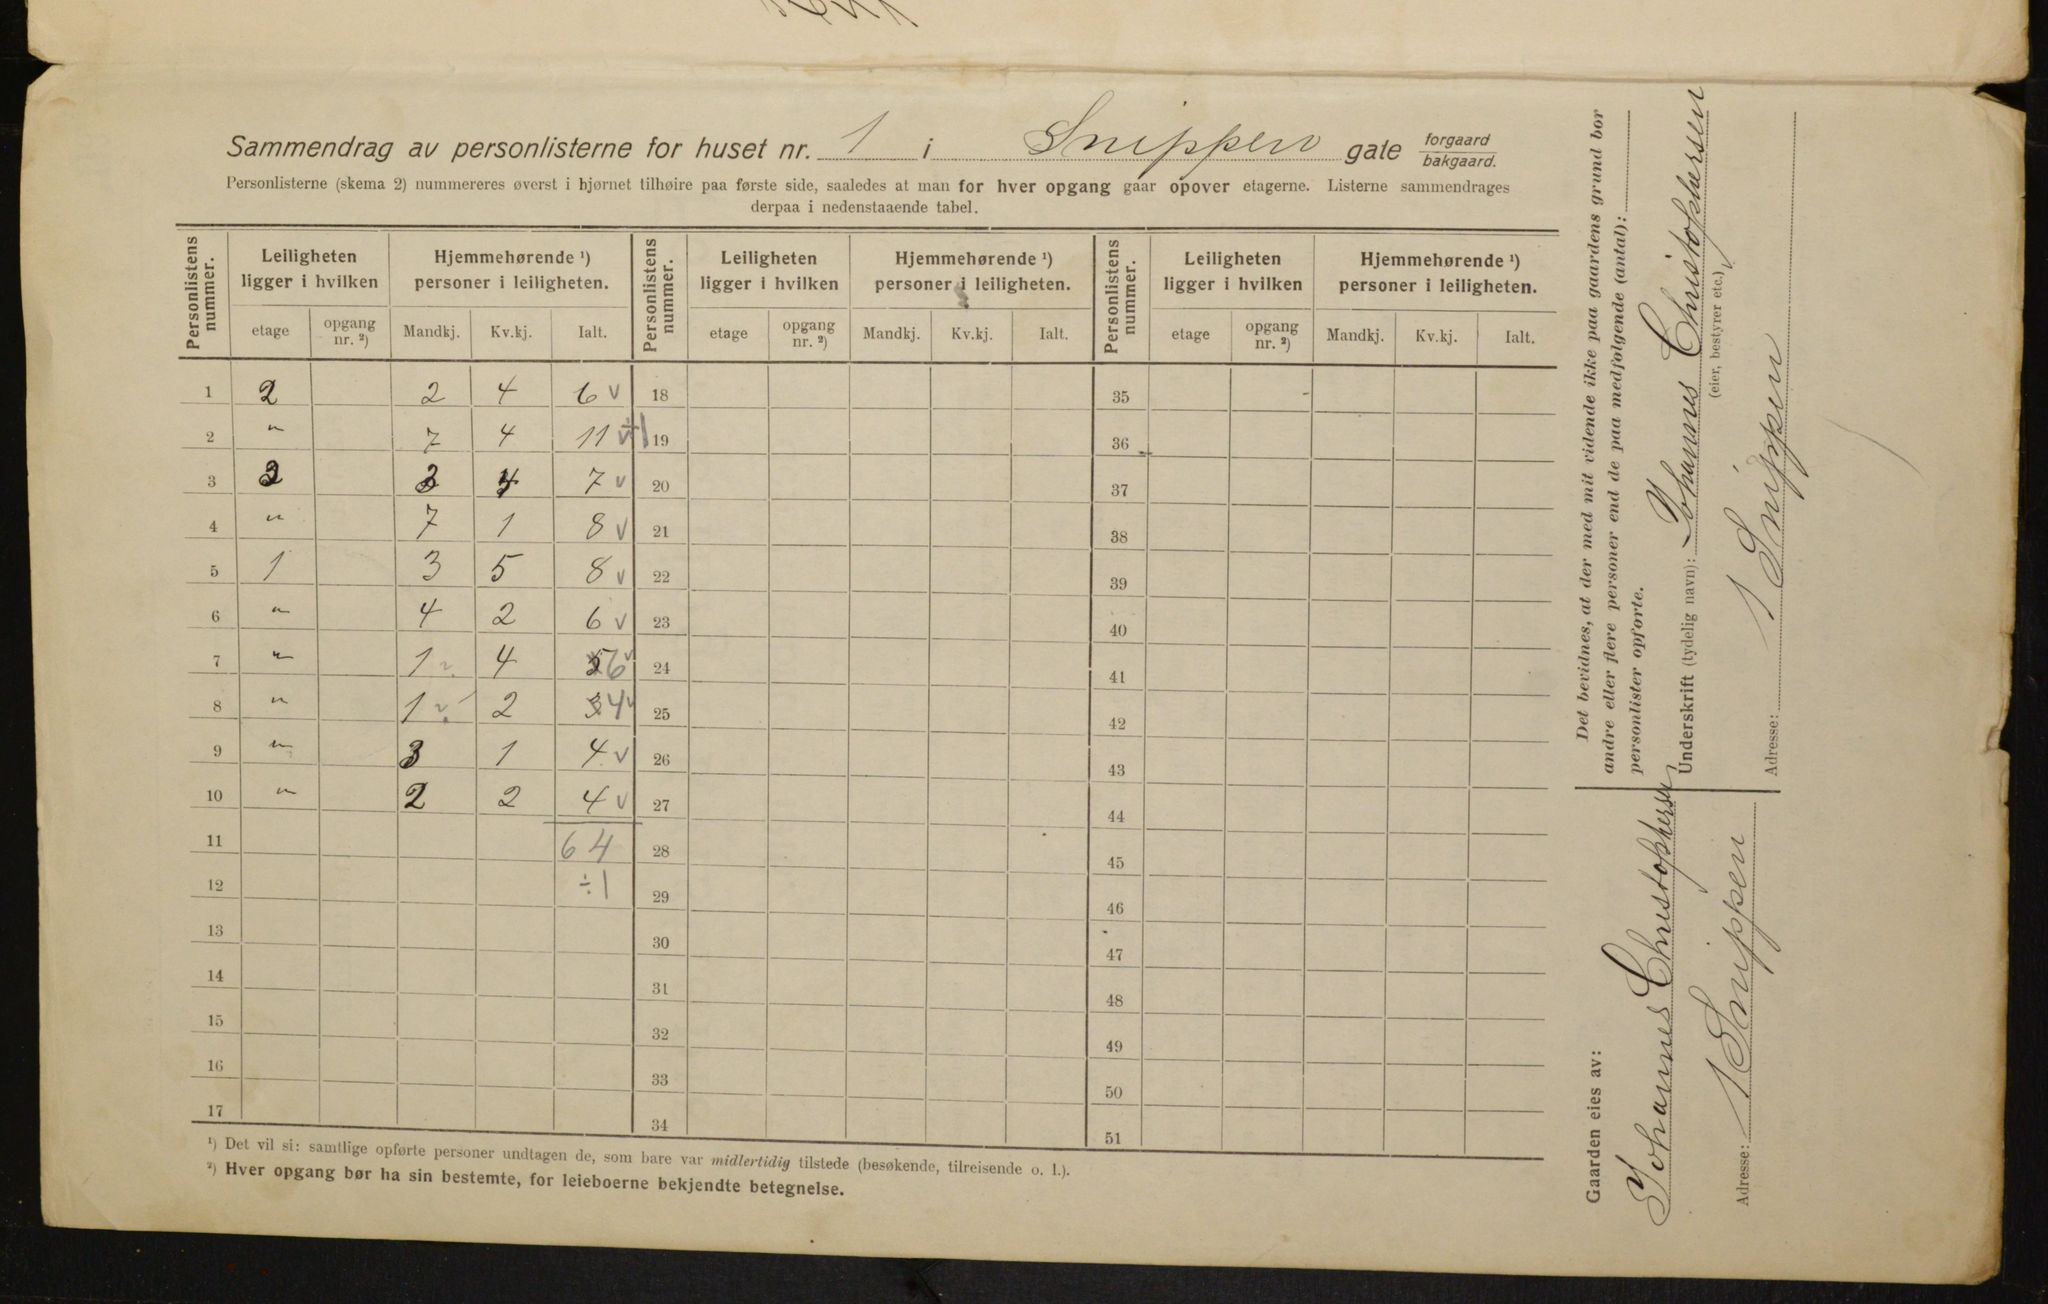 Sammendrag av personlisterne for huset nr. 1 i Snippen gate forgaard bakgaard.
Personlisterne (skema 2) nummereres øverst i hjørnet tilhøire paa første side, saaledes at man for hver opgang gaar opover etagerne. Listerne sammendrages
derpaa i nedenstaaende tabel.
Personlistens nummer. Leiligheten ligger i hvilken Hjemmehørende ¹) personer i leiligheten. Personlistens nummer. Leiligheten ligger i hvilken Hjemmehørende ¹) personer i leiligheten. Personlistens nummer. Leiligheten ligger i hvilken Hjemmehørende ¹) personer i leiligheten.
etage opgang nr. ²) Mandkj. Kv.kj. Ialt. etage opgang nr. ²) Mandkj. Kv.kj. Ialt. etage opgang nr. ²) Mandkj. Kv.kj. Ialt.
1 2 2 4 6 v 18 35
2 " 7 4 11 v ÷1 19 36
3 4 7 v 20 37
4 " 7 1 8 v 21 38
5 1 3 5 8 v 22 39
6 " 4 2 6 v 23 40
7 " 1 2 4 5 6 v 24 41
8 " 1 2 2 3 4 v 25 42
9 " 3 1 4 v 26 43
10 " 2 2 4 v 27 44
11 64 28 45
12 ÷1 29 46
13 30 47
14 31 48
15 32 49
16 33 50
17 34 51
¹) Det vil si: samtlige opførte personer undtagen de, som bare var midlertidig tilstede (besøkende, tilreisende o. l.).
²) Hver opgang bør ha sin bestemte, for leieboerne bekjendte betegnelse.
Det bevidnes, at der med mit vidende ikke paa gaardens grund bor
andre eller flere personer end de paa medfølgende (antal):
personlister opførte.
Underskrift (tydelig navn): Johannes Christophersen
(eier, bestyrer etc.)
Adresse: 1 Snippen
Gaarden eies av:
Johannes Christophersen
Adresse: 1 Snippen